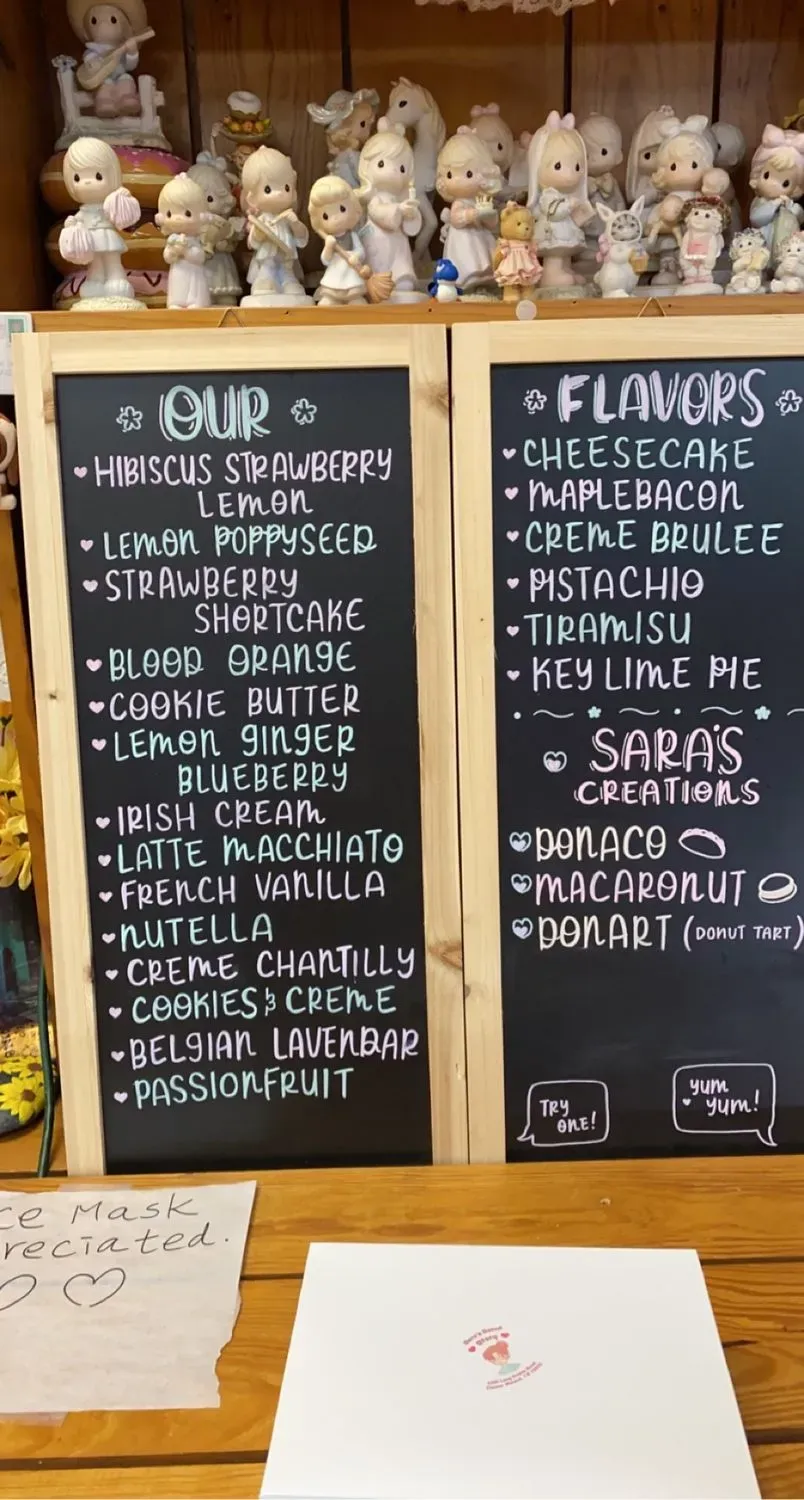 OUR
HIBISCUS STRAWBERRY
LEMON
LEMON POPPYSEED
STRAWBERRY
SHORTCAKE
BLOOD ORANGE
COOKIE BUTTER
LEMON GINGER
BLUEBERRY
IRISH CREAM
LATTE MACCHIATO
FRENCH VANILLA
NUTELLA
CREME CHANTILLY
COOKIES & CREME
BELGIAN LAVENDAR
PASSIONFRUIT
FLAVORS
CHEESECAKE
MAPLEBACON
CREME BRULEE
PISTACHIO
TIRAMISU
KEY LIME PIE
SARA'S
CREATIONS
DONACO
MACARONUT
DONART (DONUT TART)
TRY
ONE!
yum
yum!
ce Mask
reciated.
Sara's Donut
Story